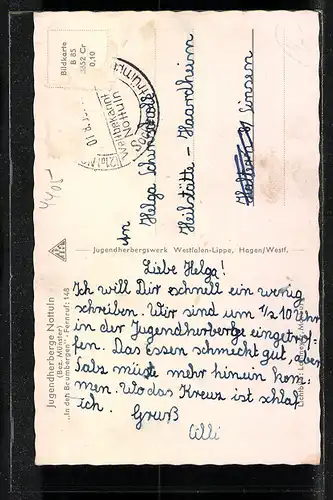 Bildkarte
B 85
3652 Cr
0,10
Weltbekannt
Nottuln
(21a) N
4405
An
Helga
Heilstätte – Haardheim
Sinsen
Jugendherbergswerk Westfalen-Lippe, Hagen/Westf.
Jugendherberge Nottuln
(Bez. Münster)
„In den Baumbergen" · Fernruf: 148
Liebe Helga!
Ich will Dir schnell ein wenig
schreiben. Wir sind um 1/2 10 Uhr
in der Jugendherberge eingetrof-
fen. Das Essen schmeckt gut, aber
Salz müste mehr hinein kom-
men. Wo das Kreuz ist schlaf
ich.
Gruß
Cilli
Lichtbild: